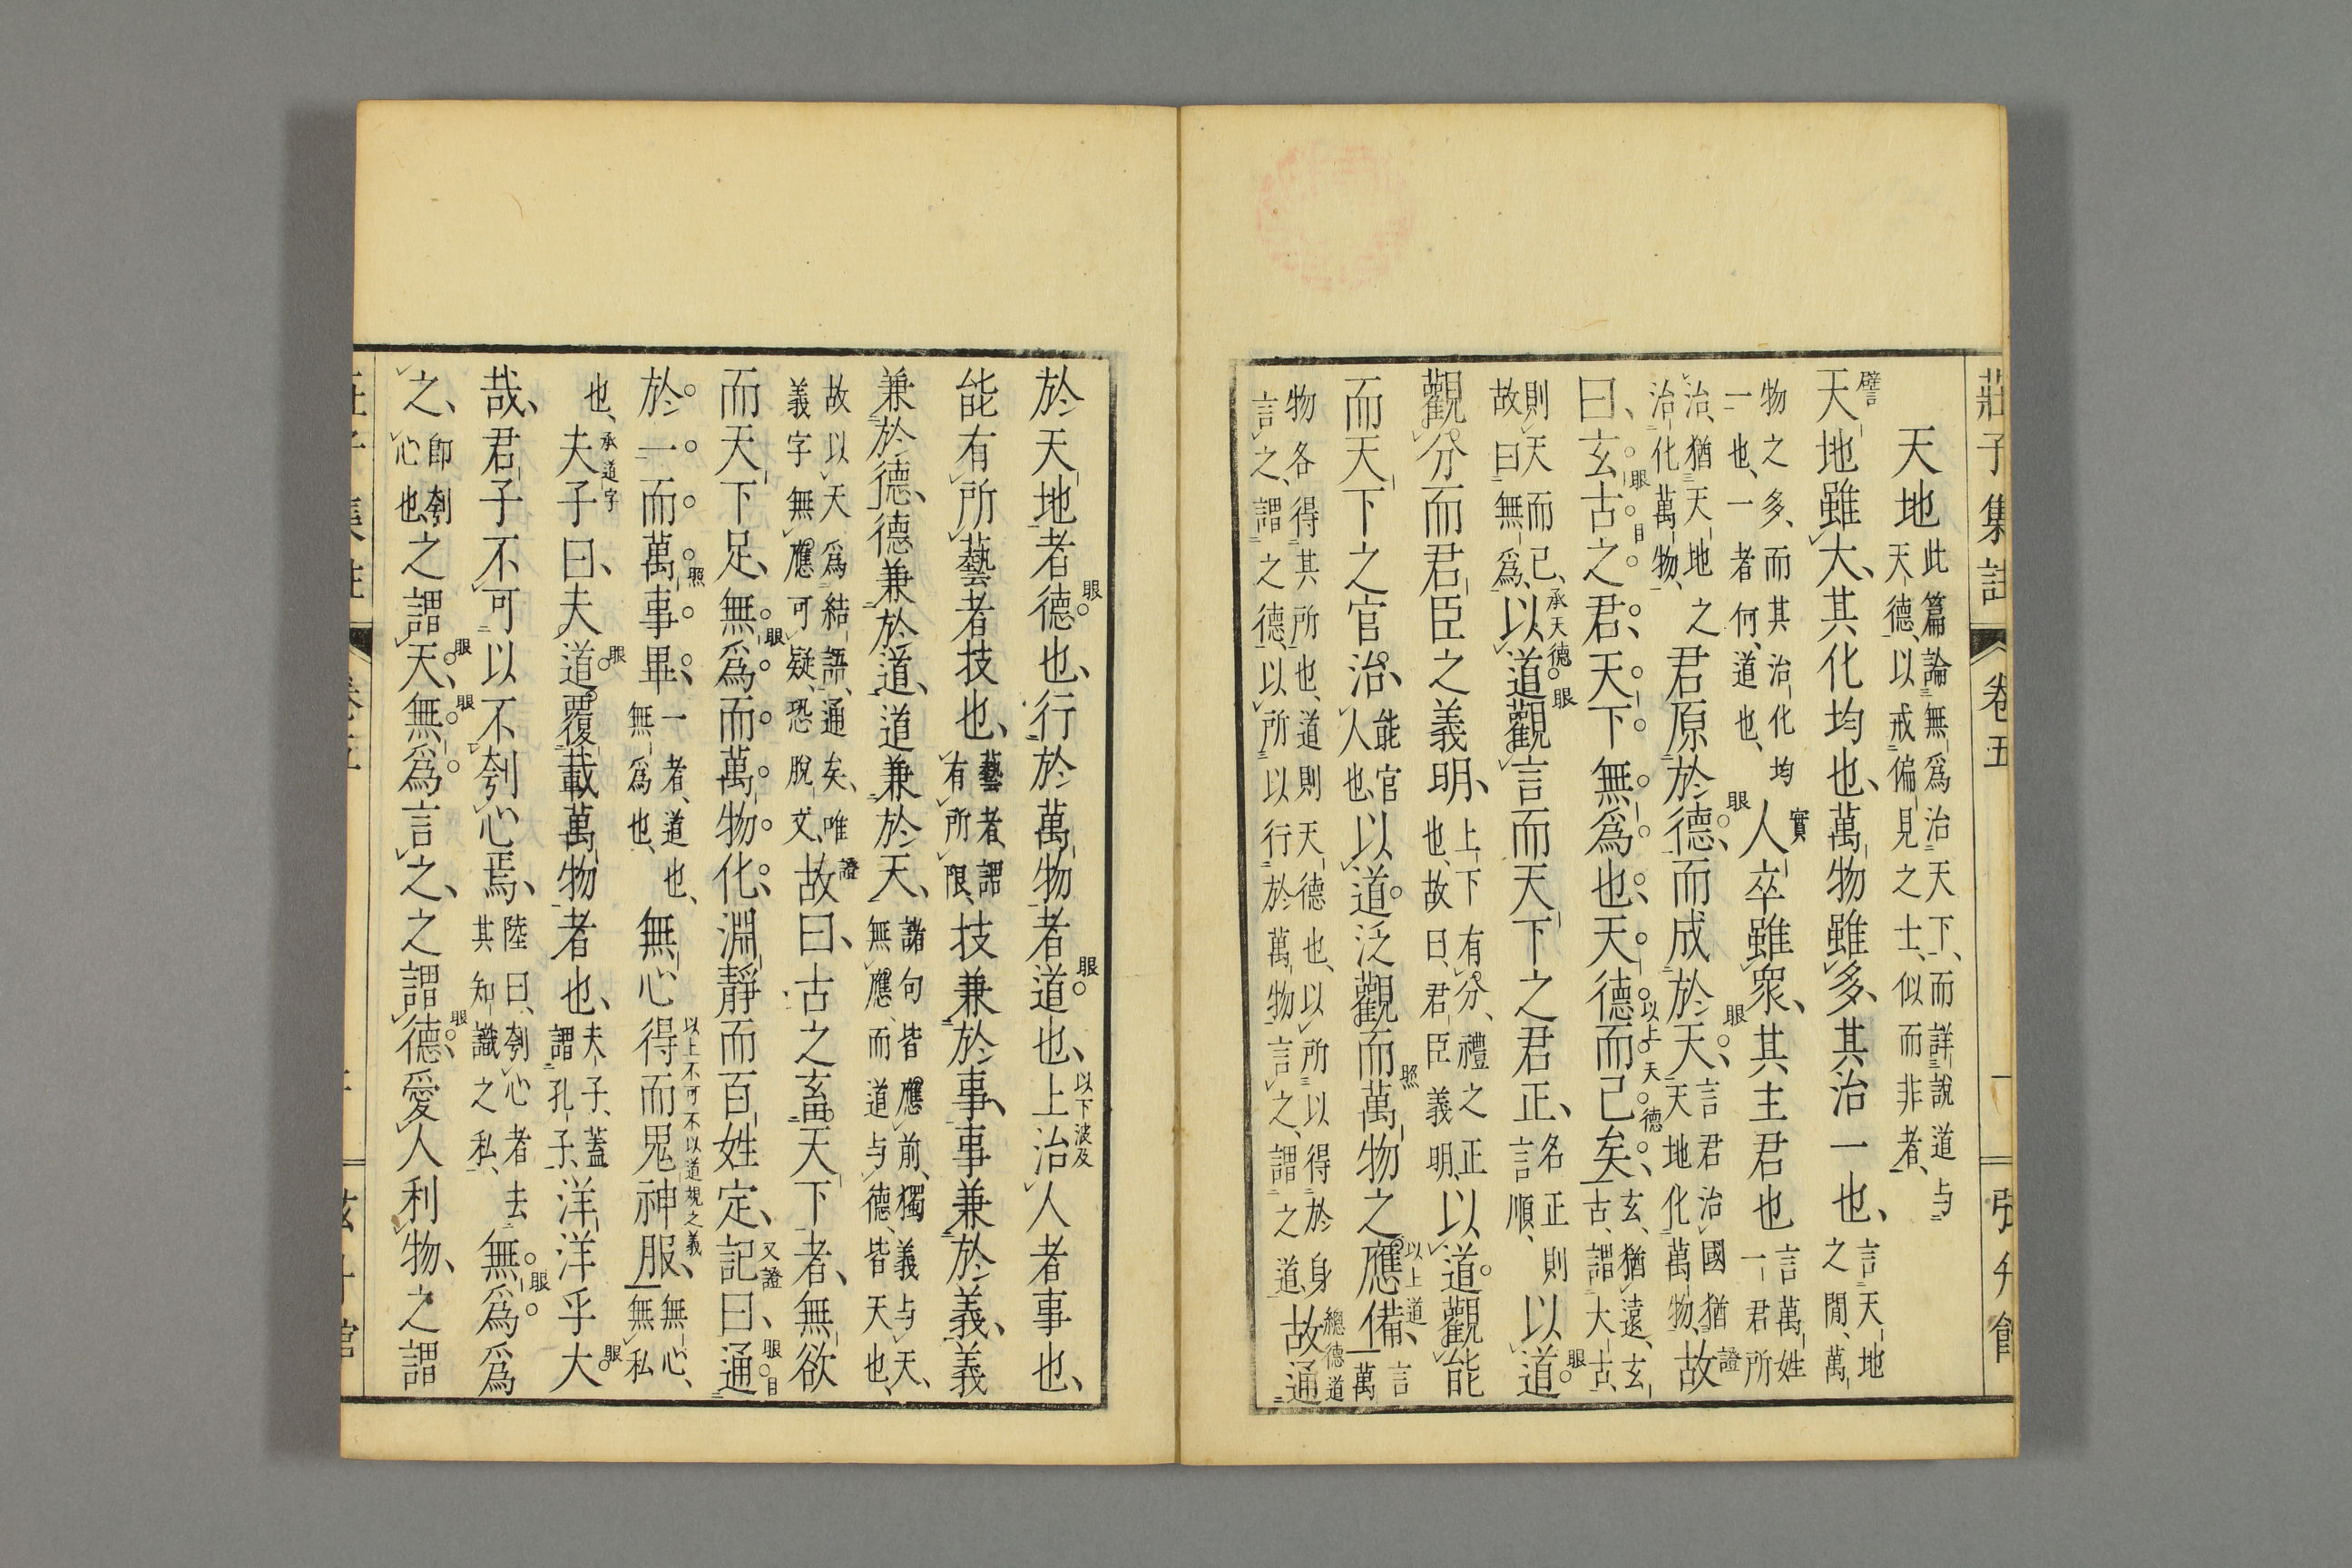 莊子集註 卷五 一
天地 此篇論無爲治天下、而詳說道与天德、以戒偏見之士、似而非者、
譬言 天地雖大、其化均也、萬物雖多、其治一也、言天地之閒、萬
物之多、而其治化均一也、一者何、道也、實 人卒雖衆、其主君也 言萬姓一君所
治、猶天地之治化萬物、君原於德、眼 而成於天、眼 言君治國猶天地化萬物、故 證
曰、玄古之君、眼目 天下無爲也、天德而已矣、以上天德 玄、猶遠、玄古、謂大古、
則天而已、故曰無爲、承天德 以道觀言而天下之君正、眼 名正則言順、以道 眼
觀分而君臣之義明、上下有分、禮之正也、故曰、君臣義明、以道觀能
而天下之官治、能官人也、以道泛觀而萬物之應備、照 以上道 言萬
物各得其所也、道則天德也、以所以得於身言之、謂之德、以所以行於萬物言之、謂之道、故通 總德道
於天地者德也、眼 行於萬物者道也、眼 上治人者事也、以下波及
能有所藝者技也、藝者、謂有所限、技兼於事、事兼於義、義
兼於德、德兼於道、道兼於天、諸句皆應前、獨義与天、無應、而道与德、皆天也、
故以天爲結語、通矣、唯義字無應可疑、恐脫文、故 證 曰、古之畜天下者、無欲
而天下足、無爲而萬物化、眼 淵靜而百姓定、記曰、又證 通 眼目
於一而萬事畢、照 一者、道也、無爲也、無心得而鬼神服、以上不可不以道規之義 無心、無私
也、夫子曰、承道字 夫道覆載萬物者也、眼 夫子、蓋謂孔子、洋洋乎大 眼
哉、君子不可以不刳心焉、陸曰、刳心者去其知識之私、無爲爲 眼
之、卽刳心也、之謂天、眼 無爲言之、眼 之謂德、眼 愛人利物、之謂